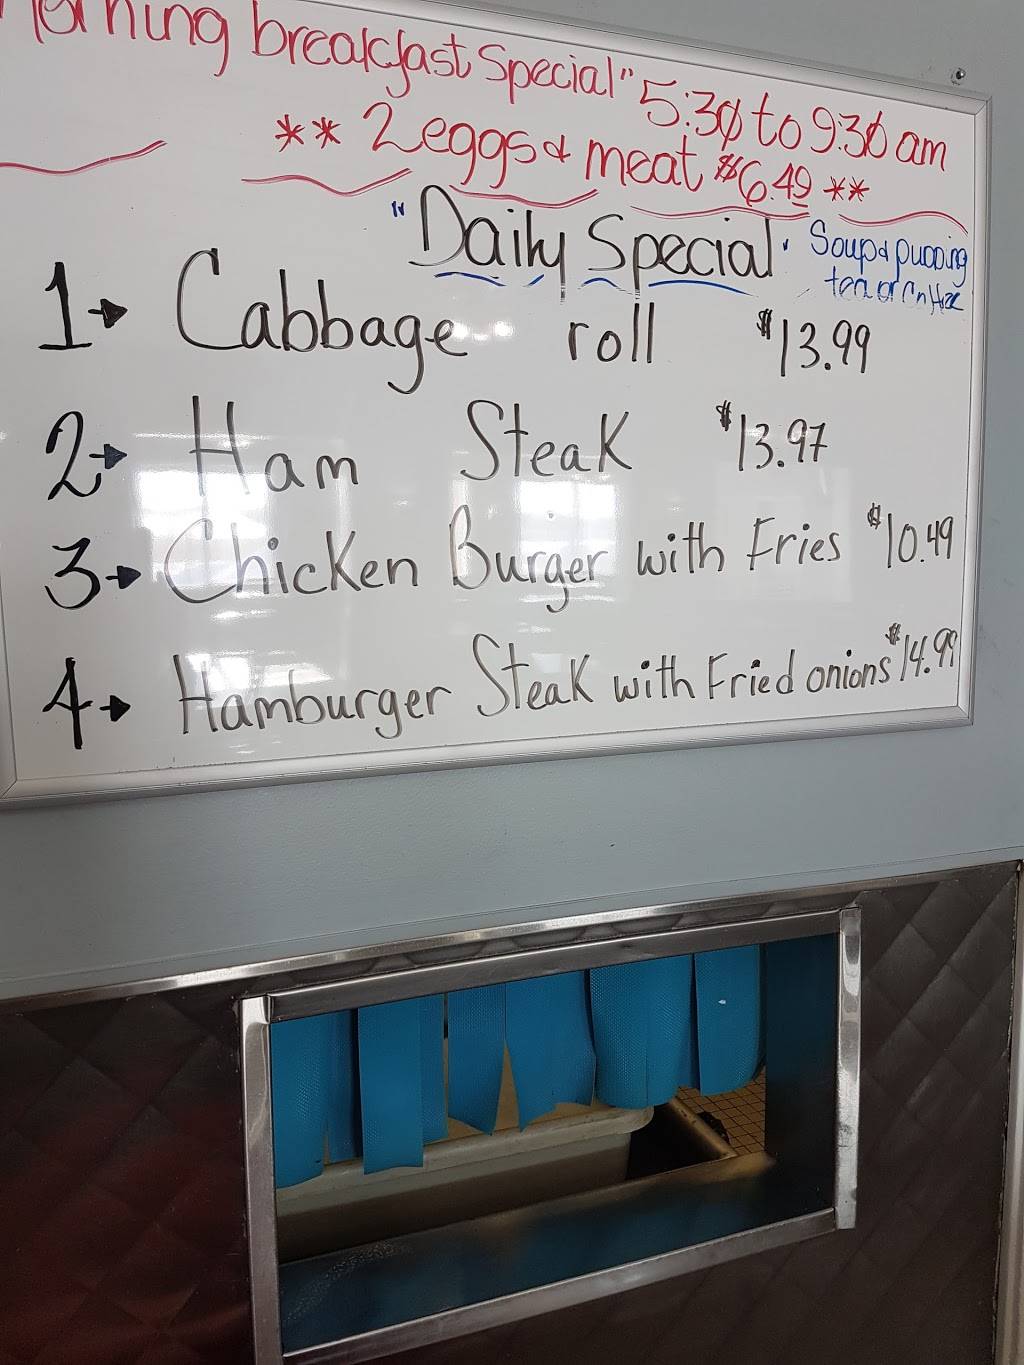 Morning breakfast Special" 5:30 to 9:30 am
** 2 eggs & meat $6.49 **
"Daily Special" Soup & pudding
tea or
1→ Cabbage roll $13.99
2→ Ham Steak $13.97
3→ Chicken Burger with Fries $10.49
4→ Hamburger Steak with Fried onions $14.99